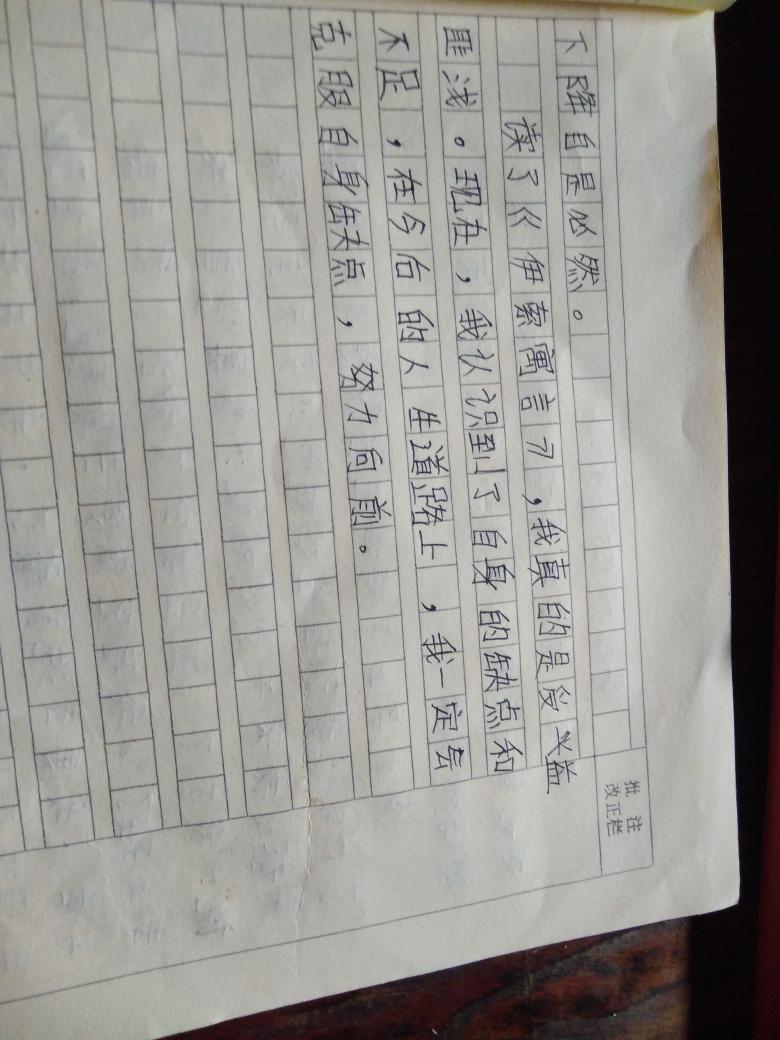 下降自是必然。
读了《伊索寓言》,我真的是受益
匪浅。现在,我认识到了自身的缺点和
不足,在今后的人生道路上,我一定去
克服自身缺点,努力向前。
批注
改正栏